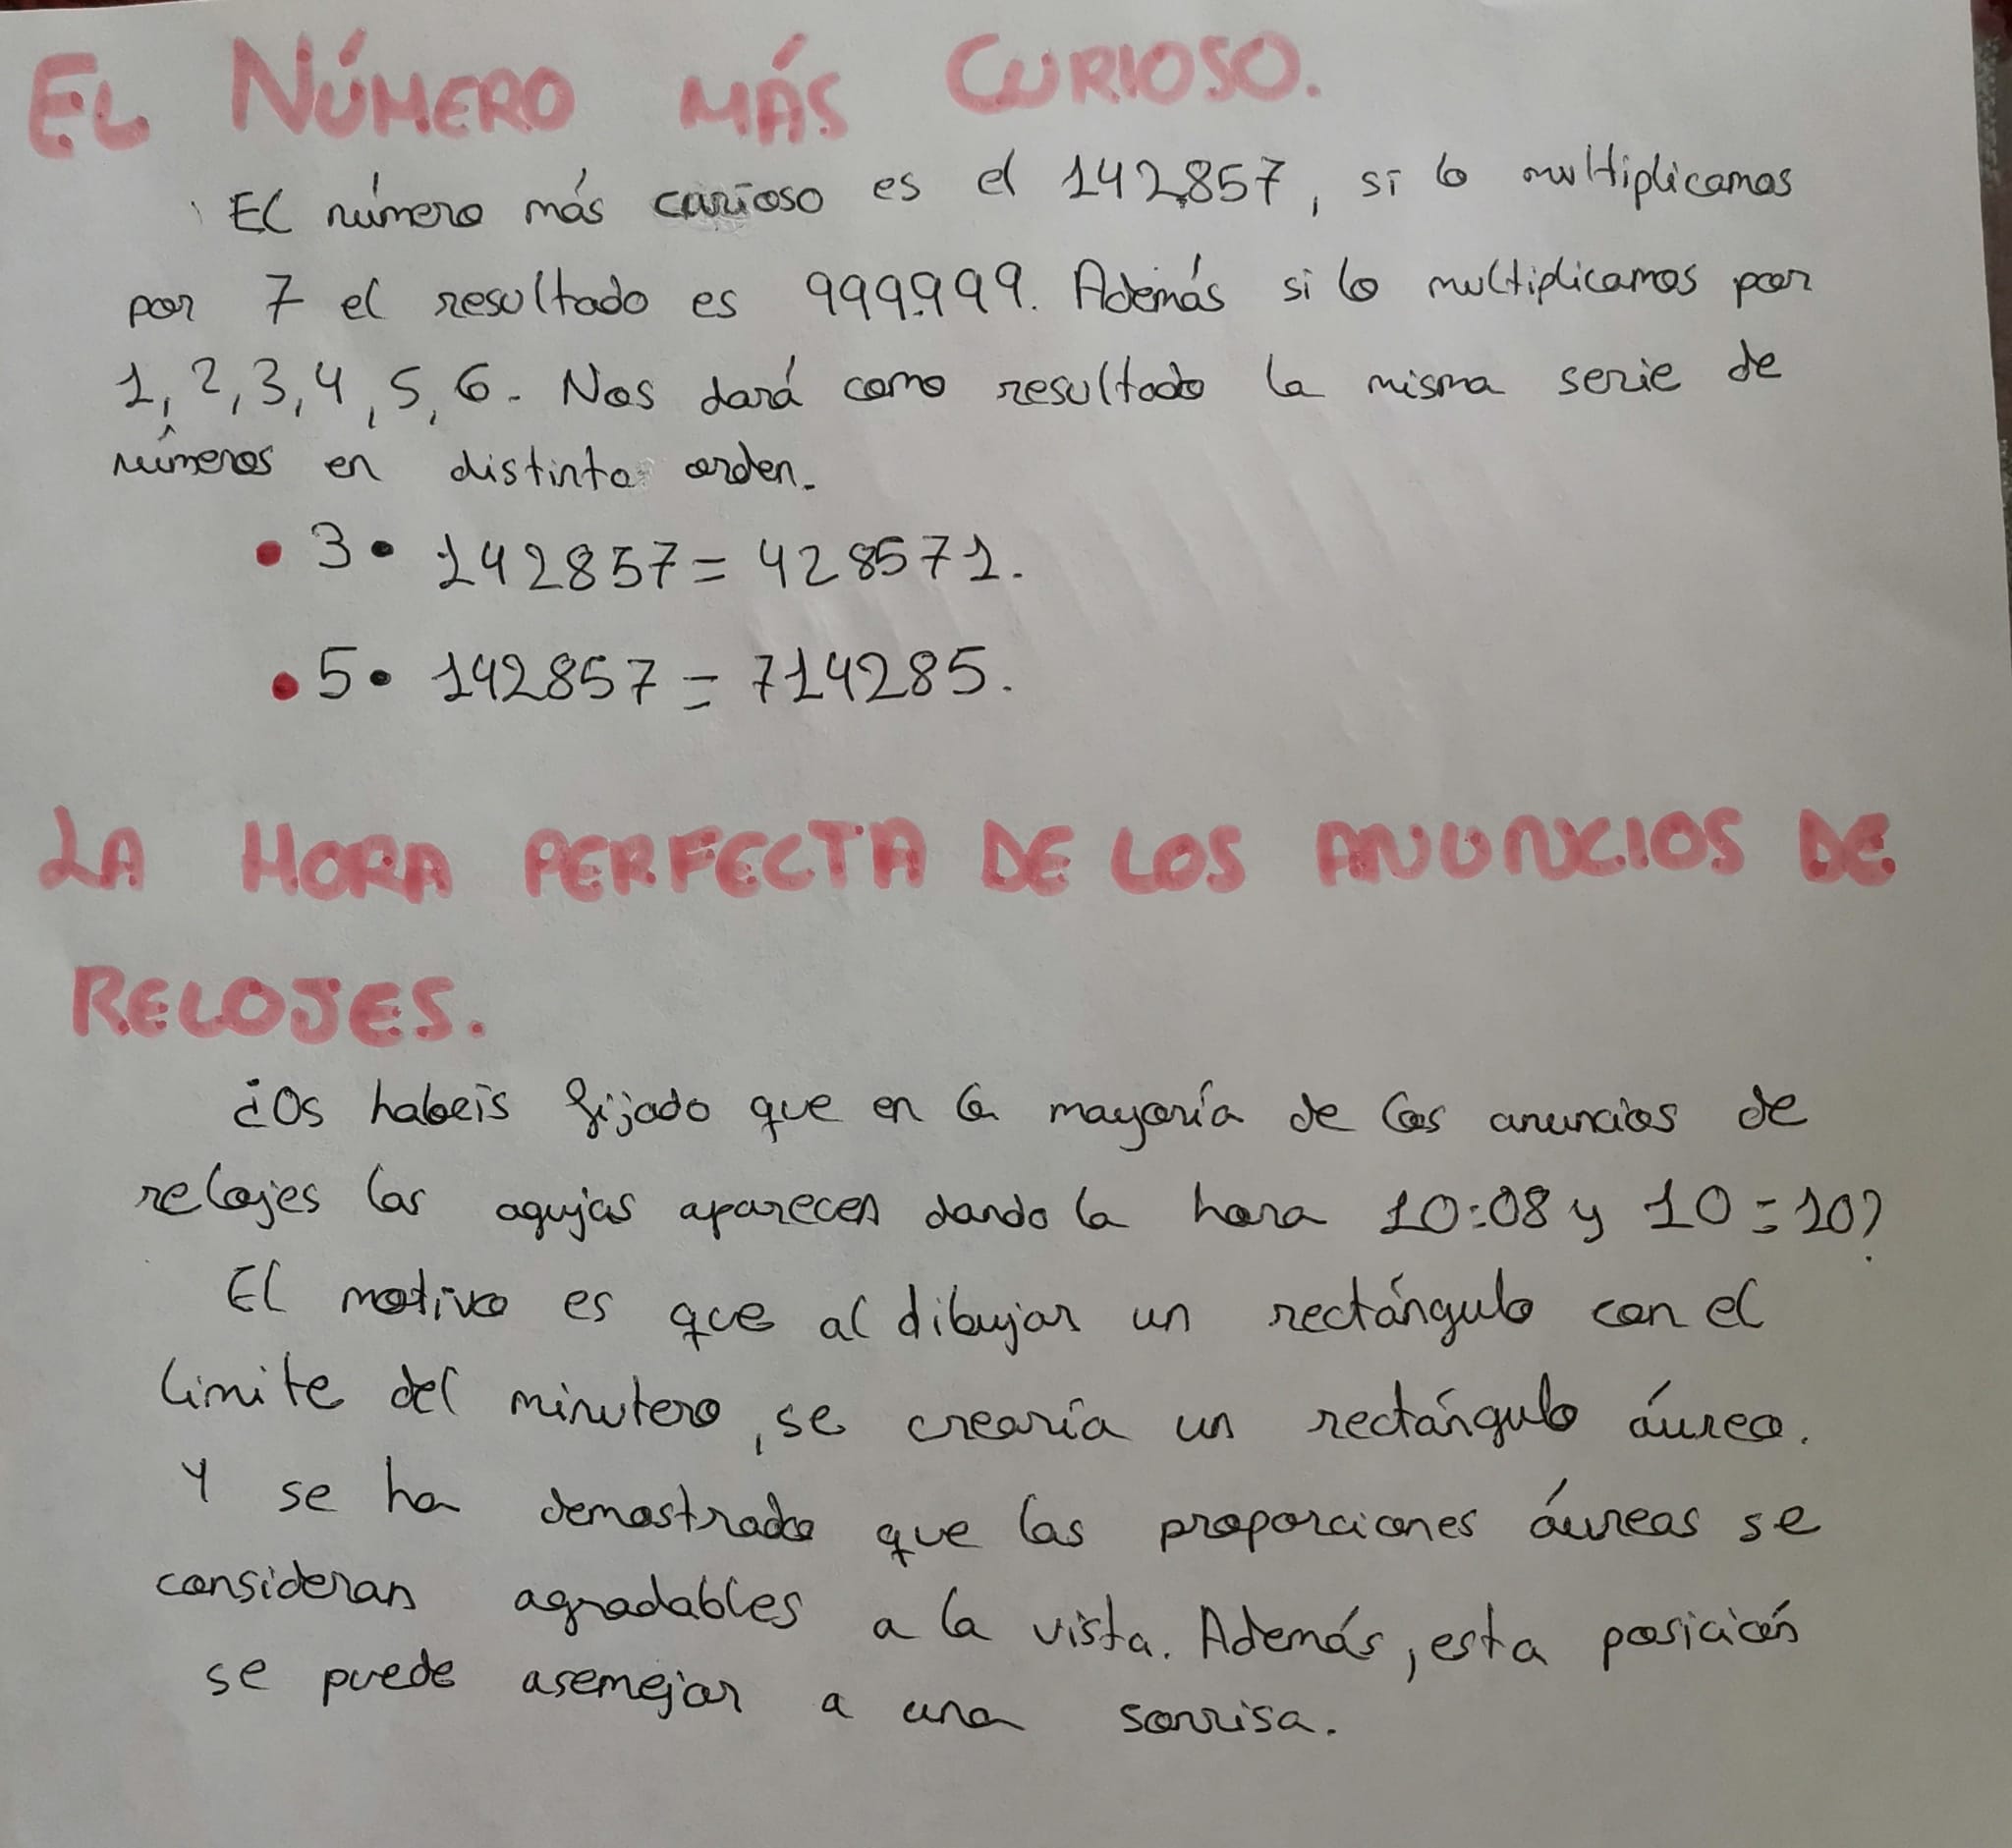 EL NÚMERO MÁS CURIOSO.
El número más curioso es el 142.857, si lo multiplicamos
por 7 el resultado es 999.999. Además si lo multiplicamos por
1, 2, 3, 4, 5, 6. Nos dará como resultado la misma serie de
números en distinto orden.
• 3 • 142857 = 428571.
• 5 • 142857 = 714285.
LA HORA PERFECTA DE LOS ANUNCIOS DE
RELOJES.
¿Os habeis fijado que en la mayoría de los anuncios de
relojes las agujas aparecen dando la hora 10:08 y 10:10?
El motivo es que al dibujar un rectángulo con el
limite del minutero, se crearía un rectángulo áureo.
Y se ha demostrado que las proporciones áureas se
consideran agradables a la vista. Además, esta posición
se puede asemejar a una sonrisa.